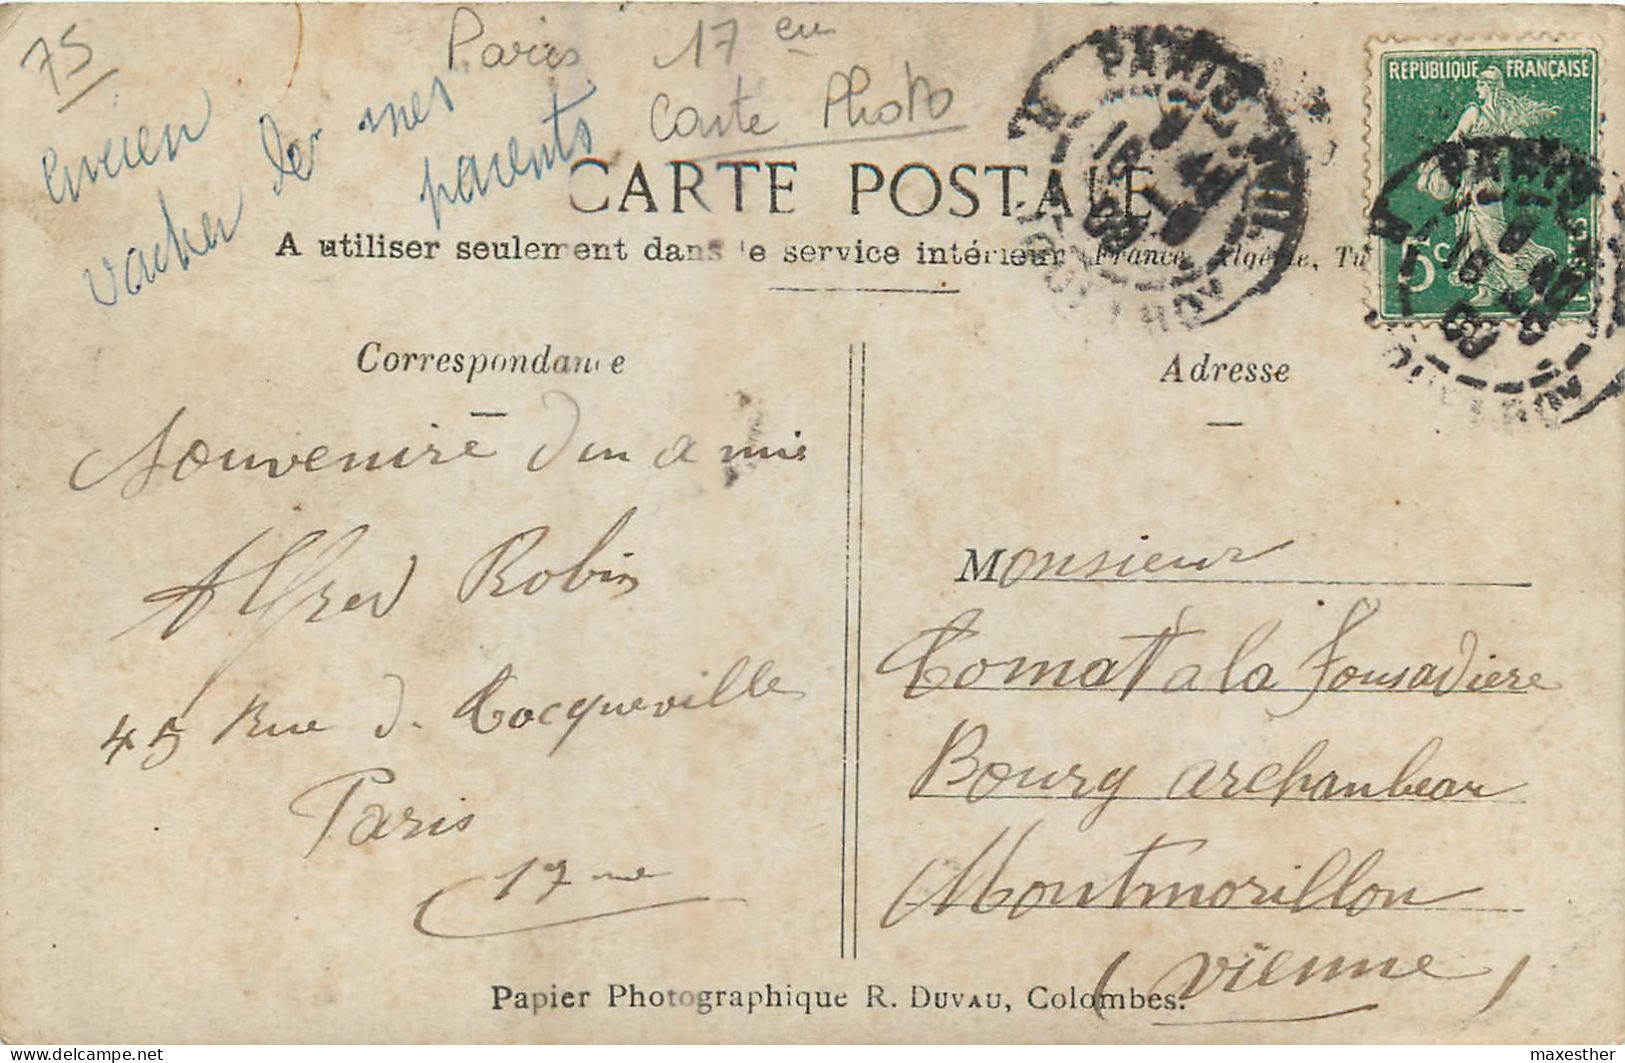 75
Paris 17 em
Carte Photo
ancien
vacher de mes
parents
CARTE POSTALE
A utiliser seulement dans le service intérieur (France, Algérie, Tu
REPUBLIQUE FRANÇAISE
5c
PARIS
PARIS
Correspondance
Adresse
Souvenire d'un amie
Alfred Robin
45 Rue de Tocqueville
Paris
17 me
Monsieur
Tomat a la Fousadiere
Bourg archanbeau
Montmorillon
(Vienne)
Papier Photographique R. DUVAU, Colombes.
delcampe.net
maxesther